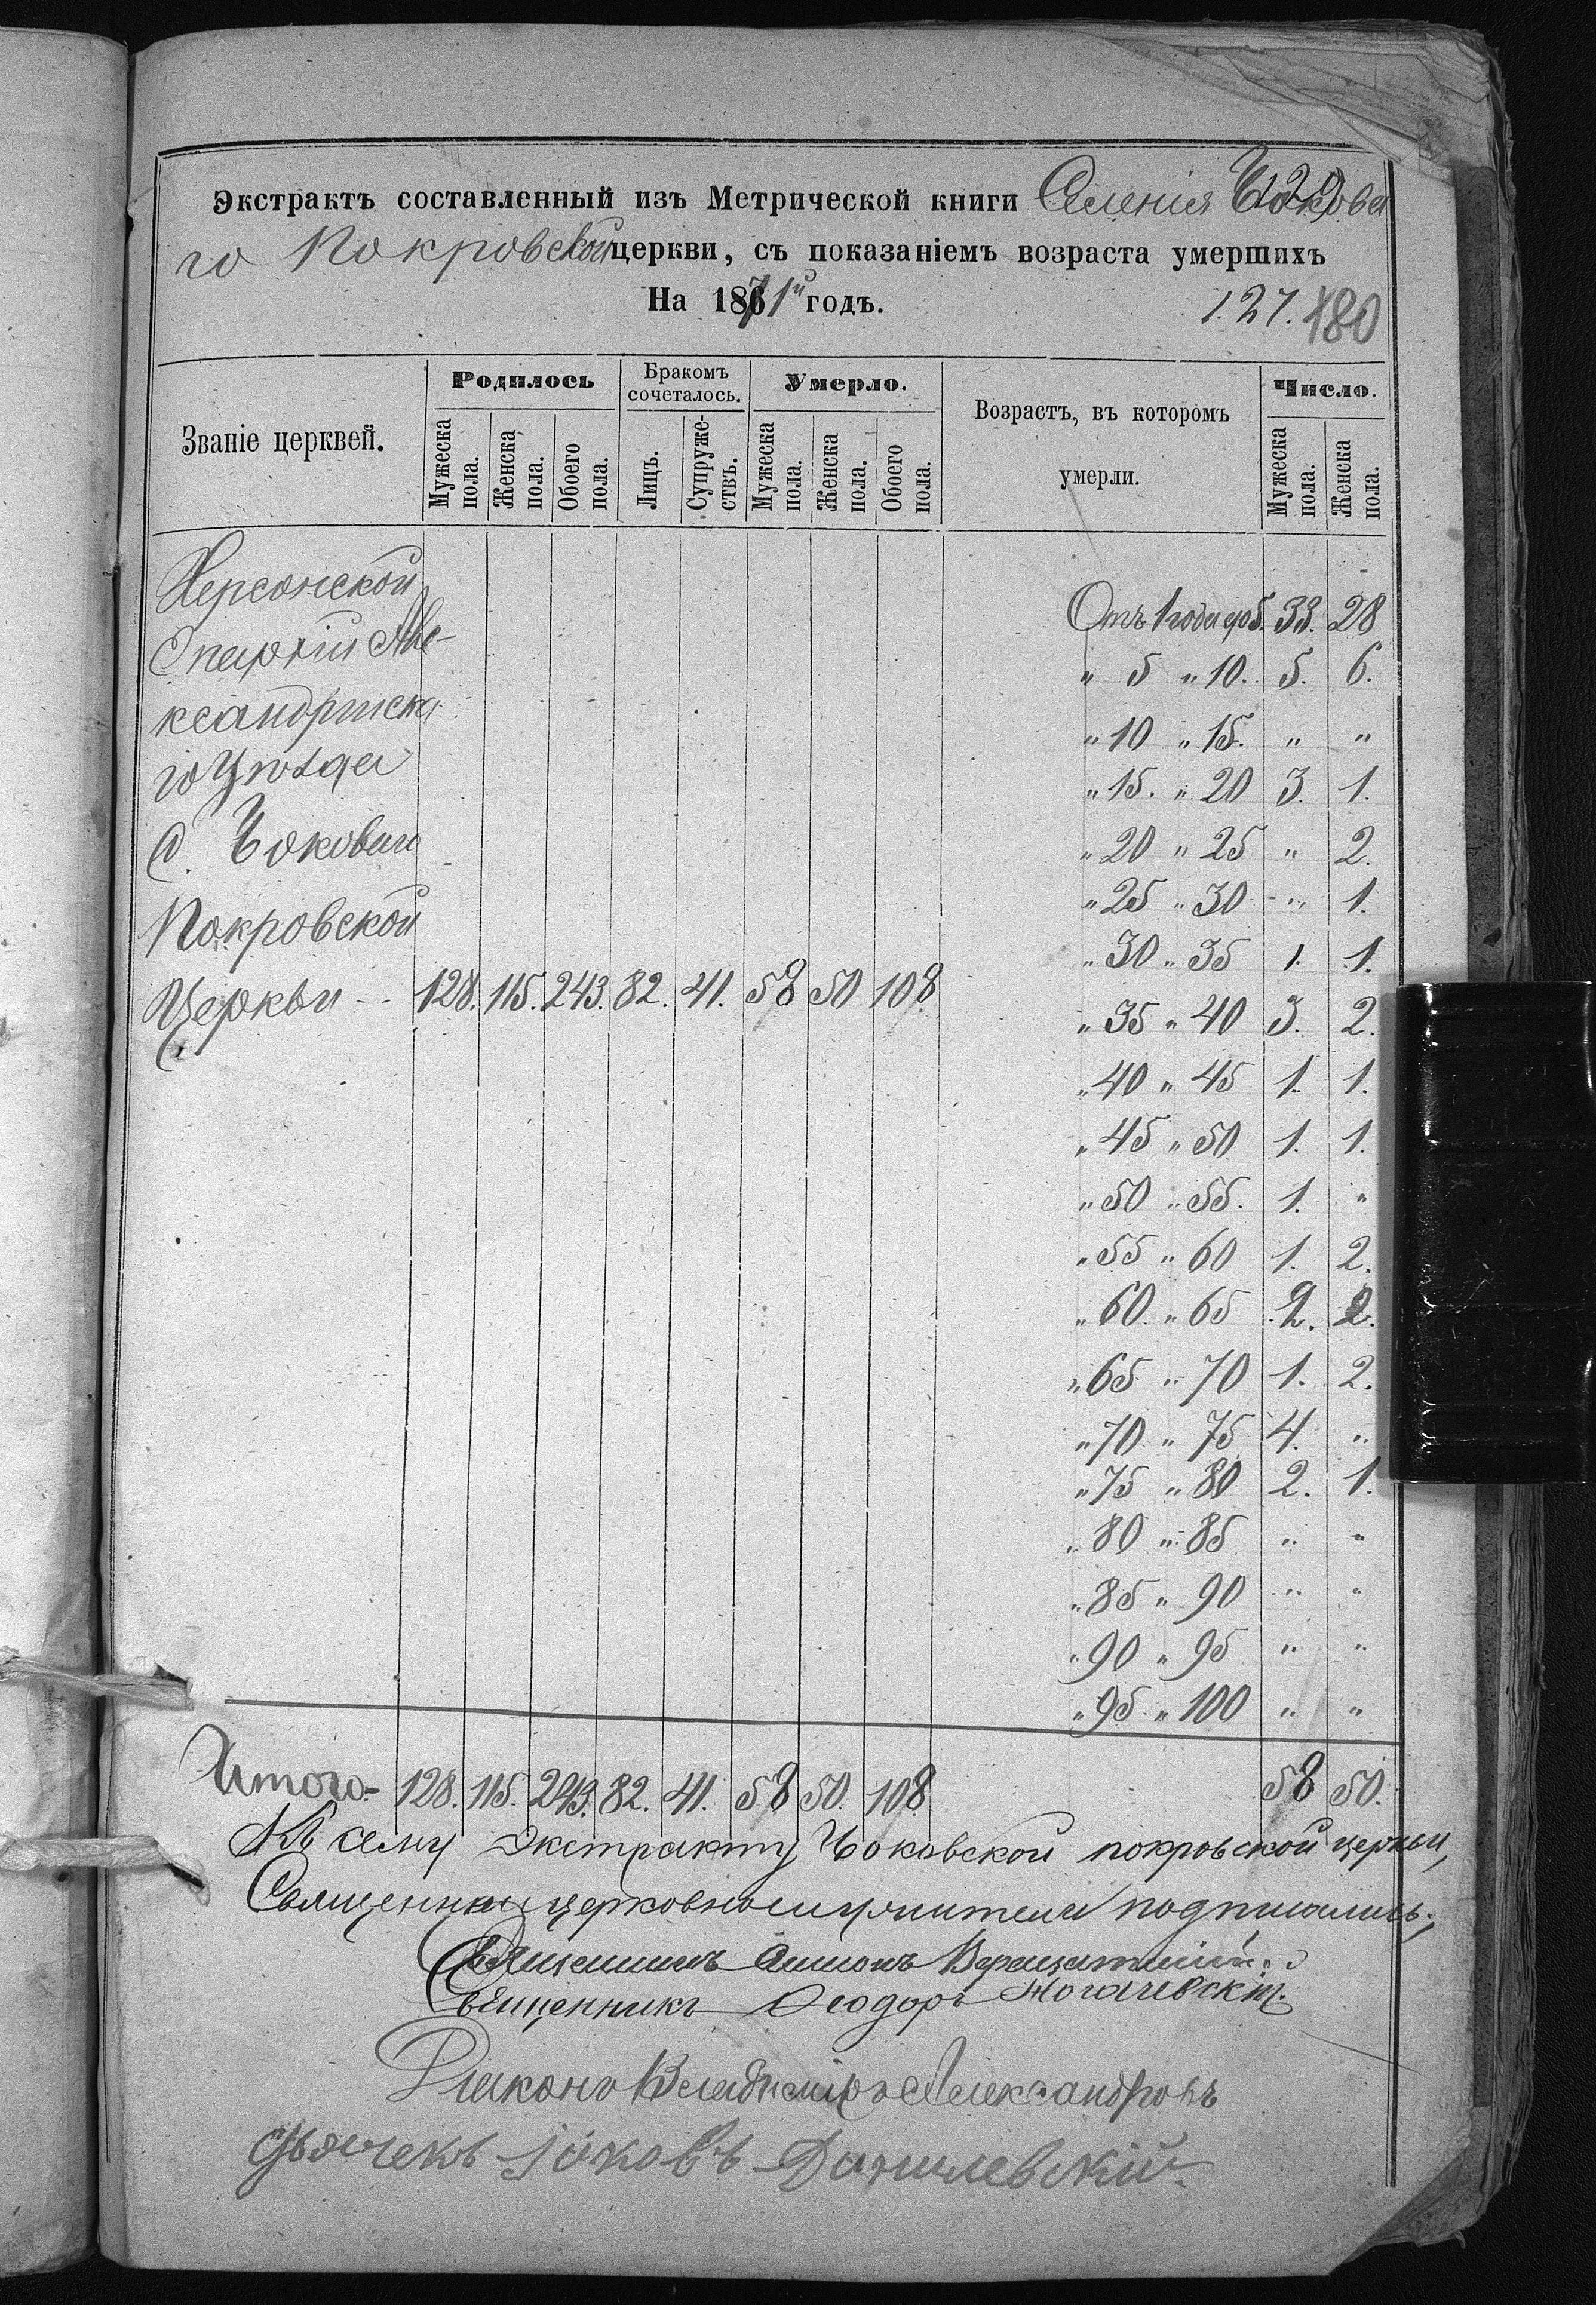 129
Экстрактъ составленный изъ Метрической книги Селенія Чокова
го Покровской церкви, съ показаніемъ возраста умершихъ
На 1871й годъ.
1.27. 180
Званіе церквей. Родилось Бракомъ сочеталось. Умерло. Возрастъ, въ которомъ умерли. Число.
Мужеска пола. Женска пола. Обоего пола. Лицъ. Супружествъ. Мужеска пола. Женска пола. Обоего пола. Мужеска пола. Женска пола.
Херсонской
Епархіи Але-
ксандрійска
го Уѣзда
С. Чокови
Покровской
Церкви -- 128. 115. 243. 82. 41. 58 50 108
Отъ 1 года до 5. 33. 28
" 5 " 10. 5. 6.
" 10 " 15. " "
" 15. " 20 3. 1.
" 20 " 25 " 2.
" 25 " 30 " 1.
" 30 " 35 1. 1.
" 35 " 40 3. 2.
" 40 " 45 1. 1.
" 45 " 50 1. 1.
" 50 " 55. 1. "
" 55 " 60 1. 2.
" 60. " 65 2. 2.
" 65 " 70 1. 2.
" 70 " 75 4. "
" 75 " 80 2. 1.
" 80 " 85 " "
" 85 " 90 " "
" 90 " 95 " "
" 95 " 100 " "
Итого- 128. 115. 243. 82. 41. 58 50. 108 58 50.
Къ сему Экстракту Чоковской покровской церкви,
Священно церковнослужители подписались:
Священникъ
Священникъ Ѳеодоръ
Діаконъ Владиміръ Александровъ
Дьячекъ Іаковъ Данилевскій